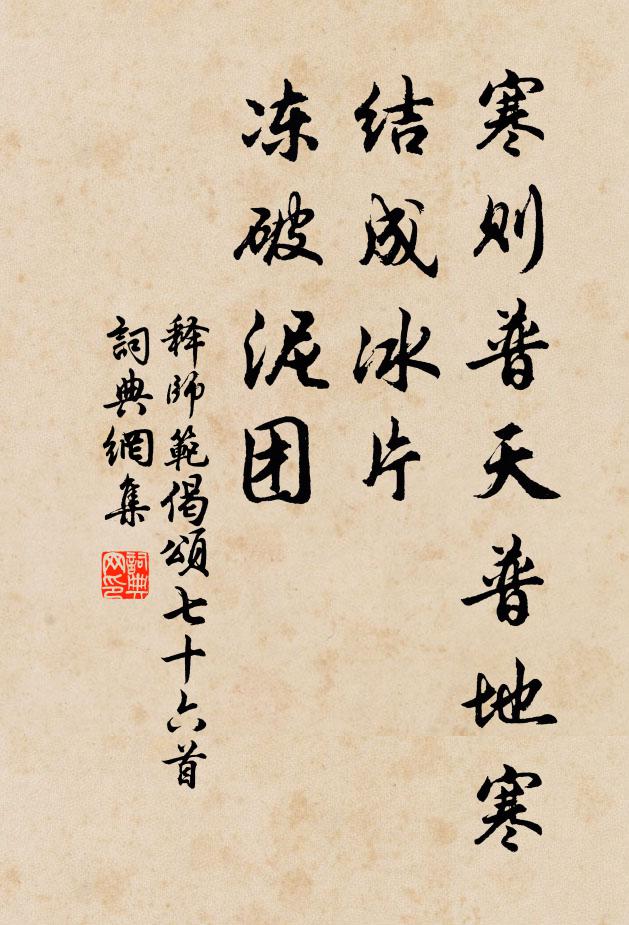 寒则普天普地寒
结成冰片
冻破泥团
释师範偈頌七十六首
詞典網集
詞典网印